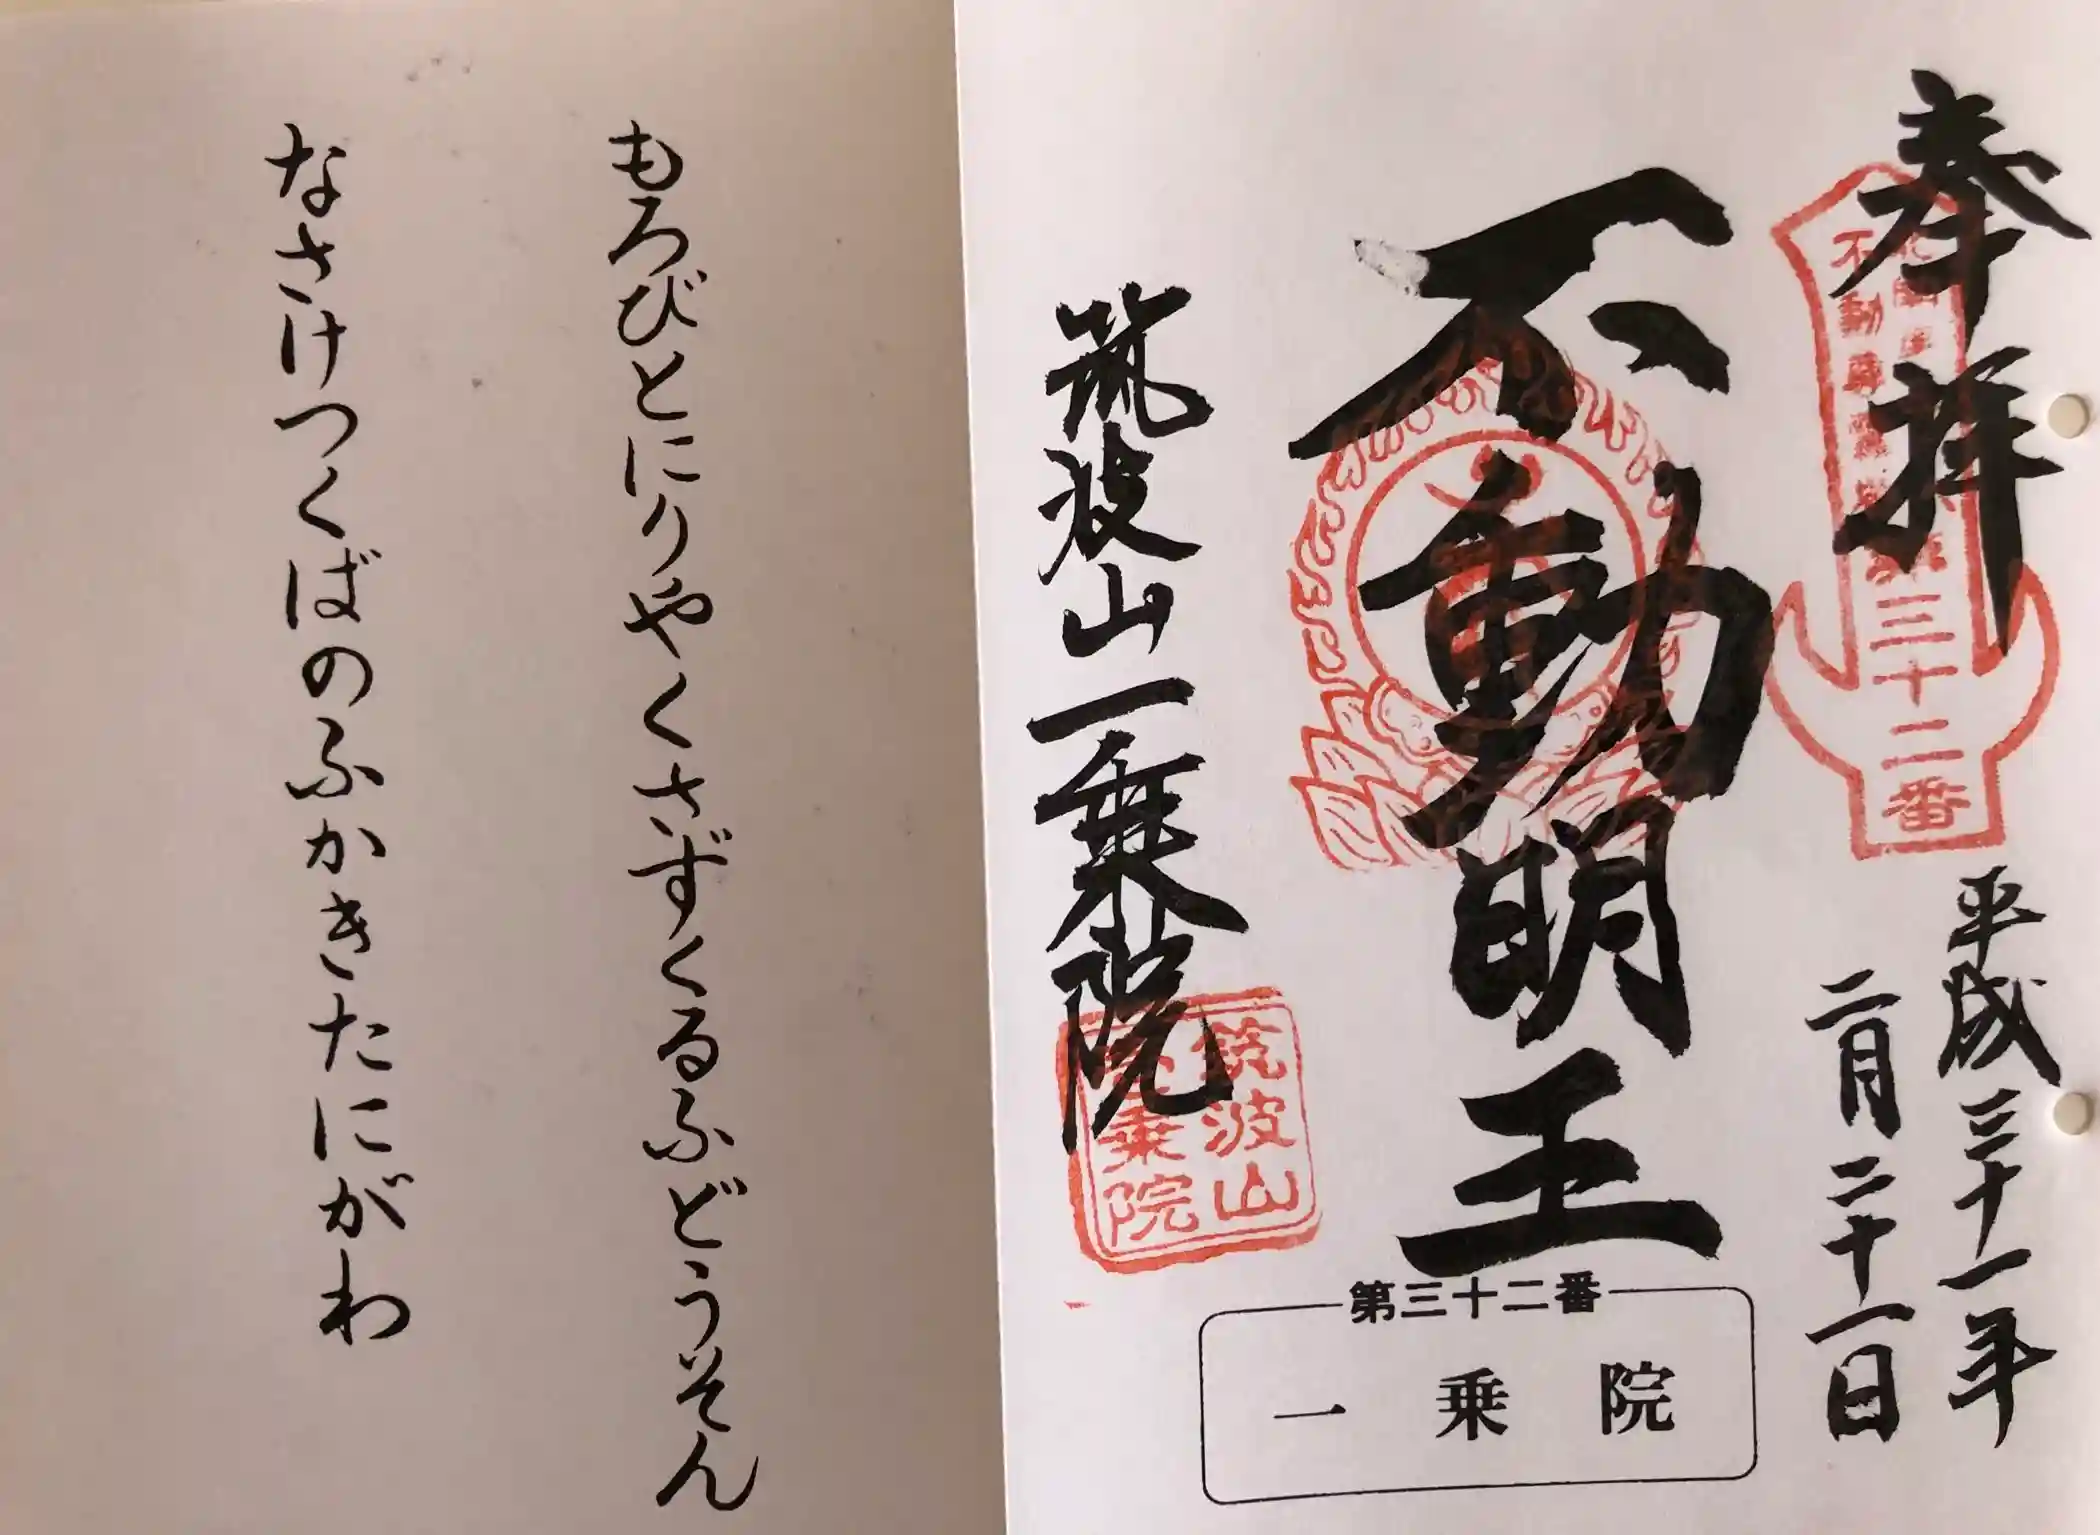 奉拝
平成三十一年
二月二十一日
不動明王
筑波山一乗院
不動尊霊場
第三十二番
筑波山
一乗院
第三十二番
一乗院
もろびとにりやくさずくるふどうそん
なさけつくばのふかきたにがわ